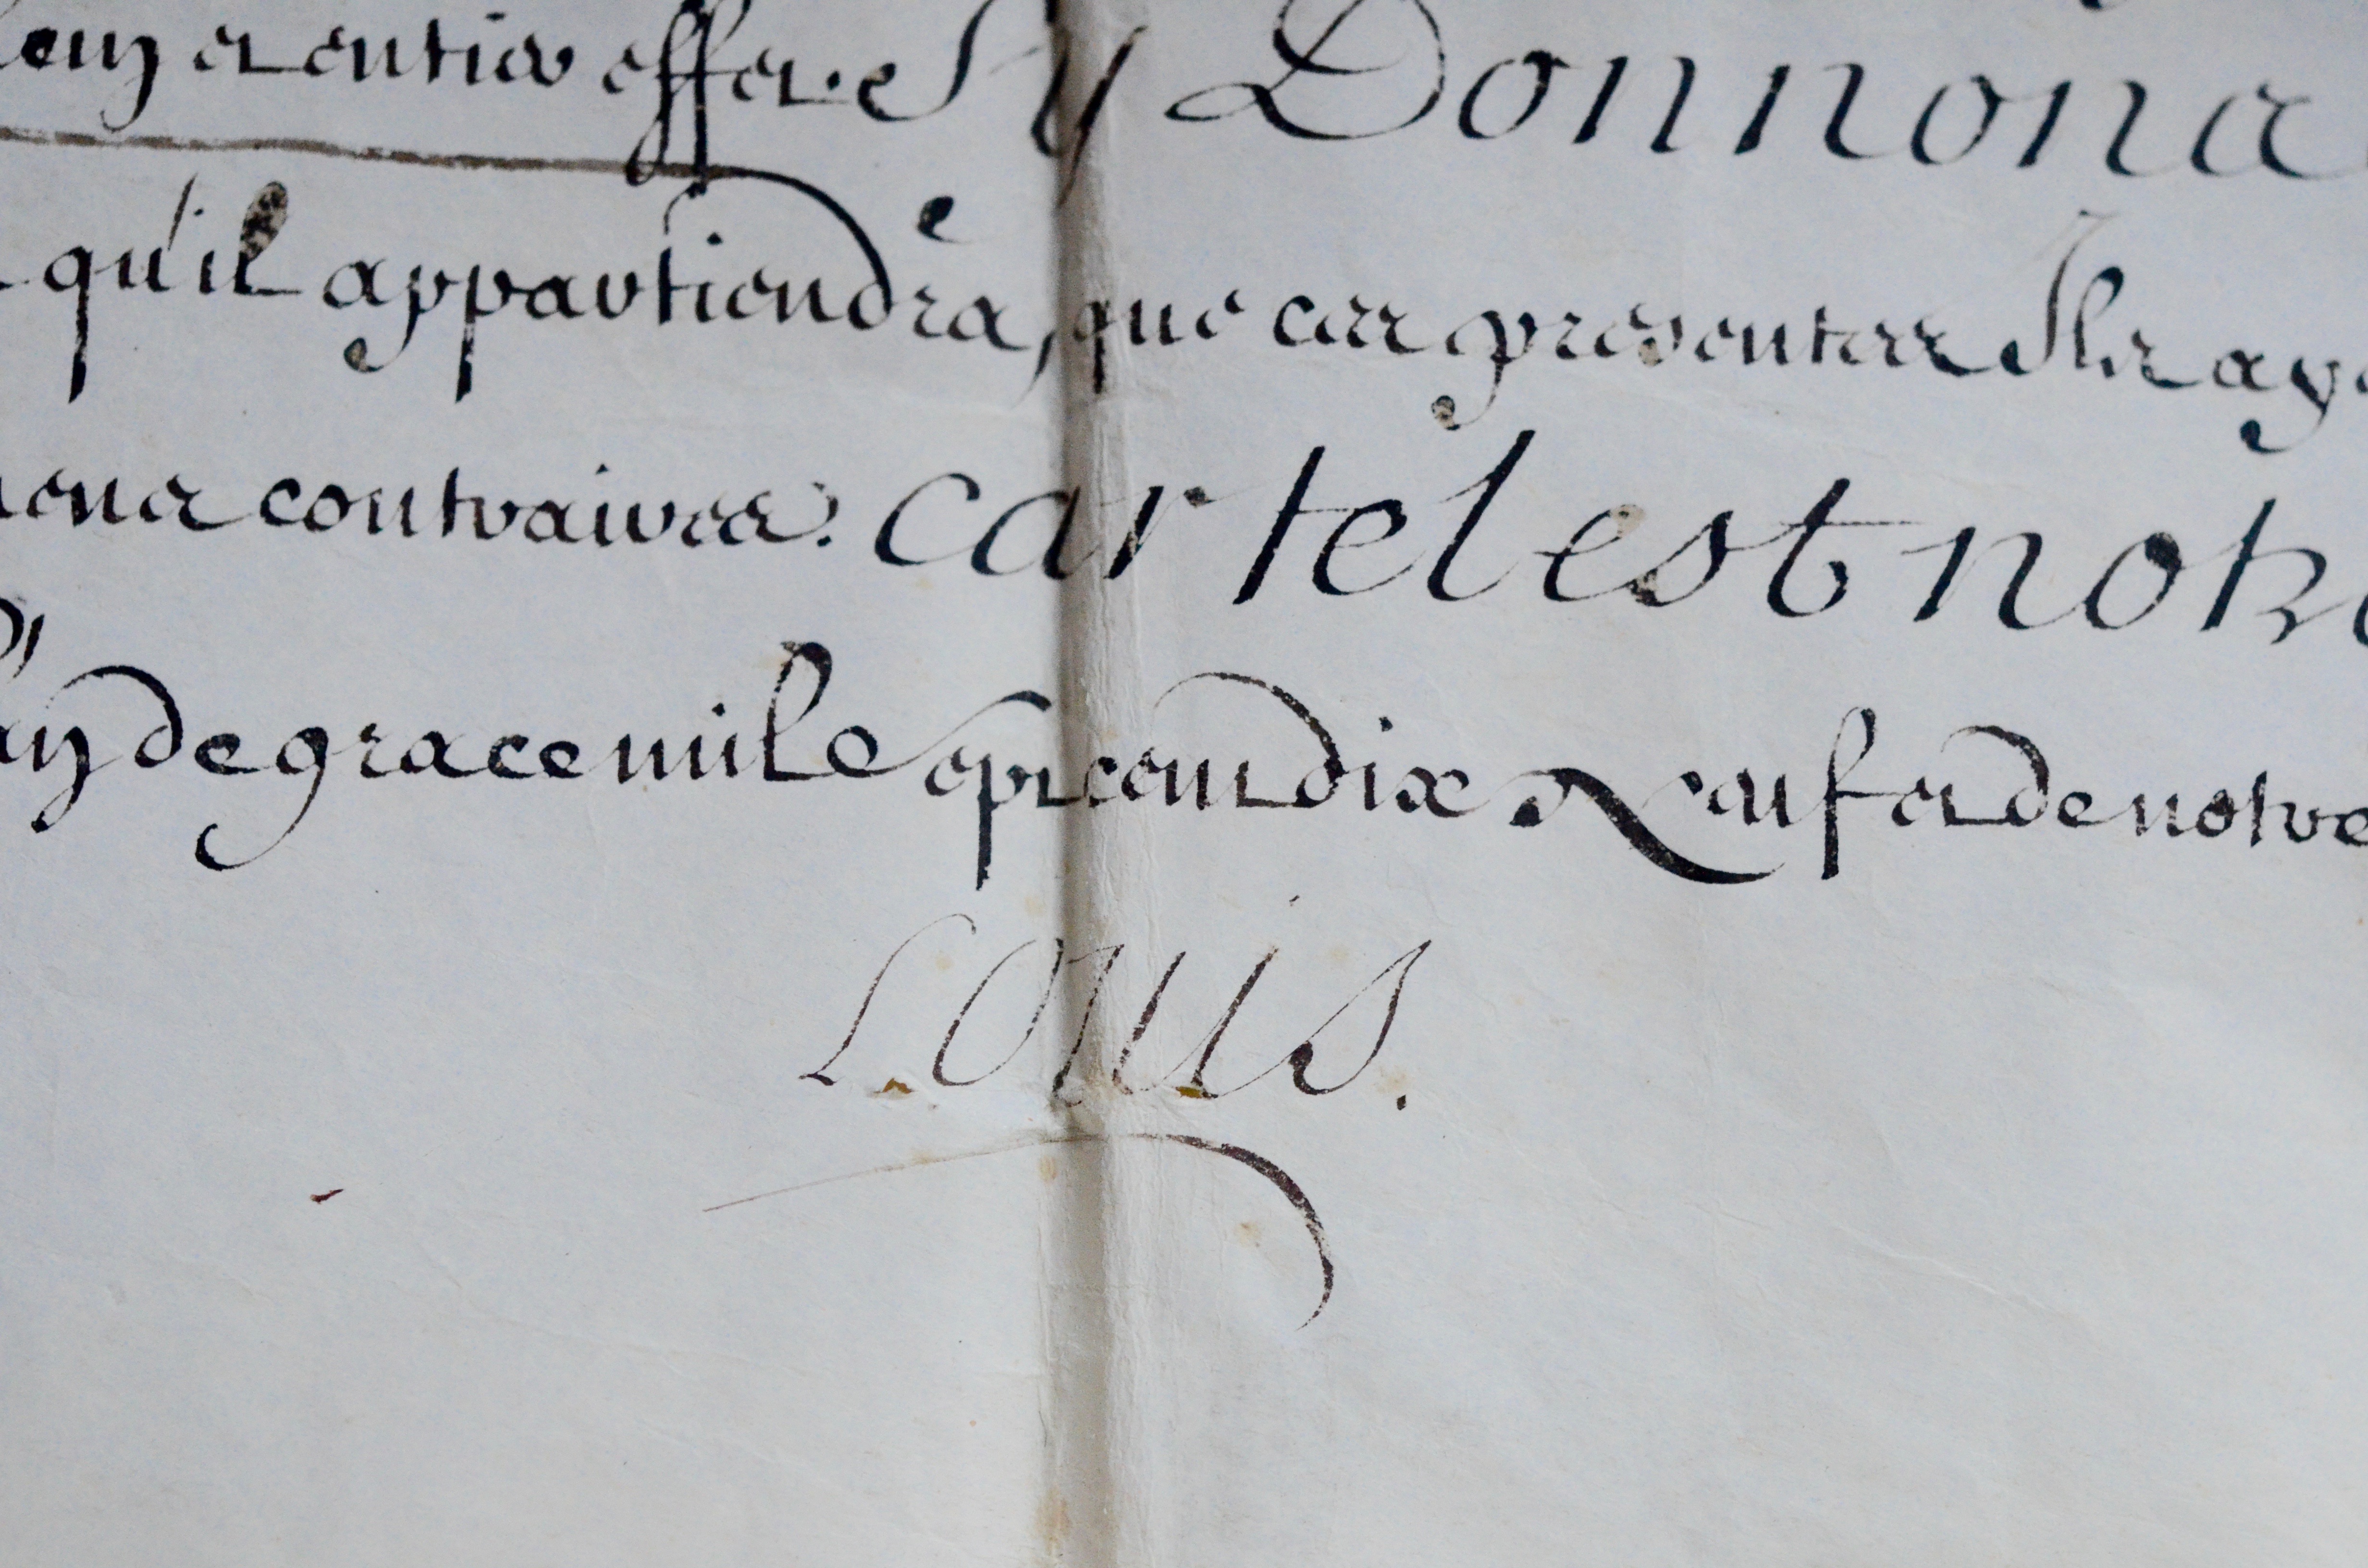 et entier effet. Sy Donnons
qu'il appartiendra, que ces presentes Ils ay
contraires. car tel est notre
de grace mile sept cent dix neuf et de notre
Louis.